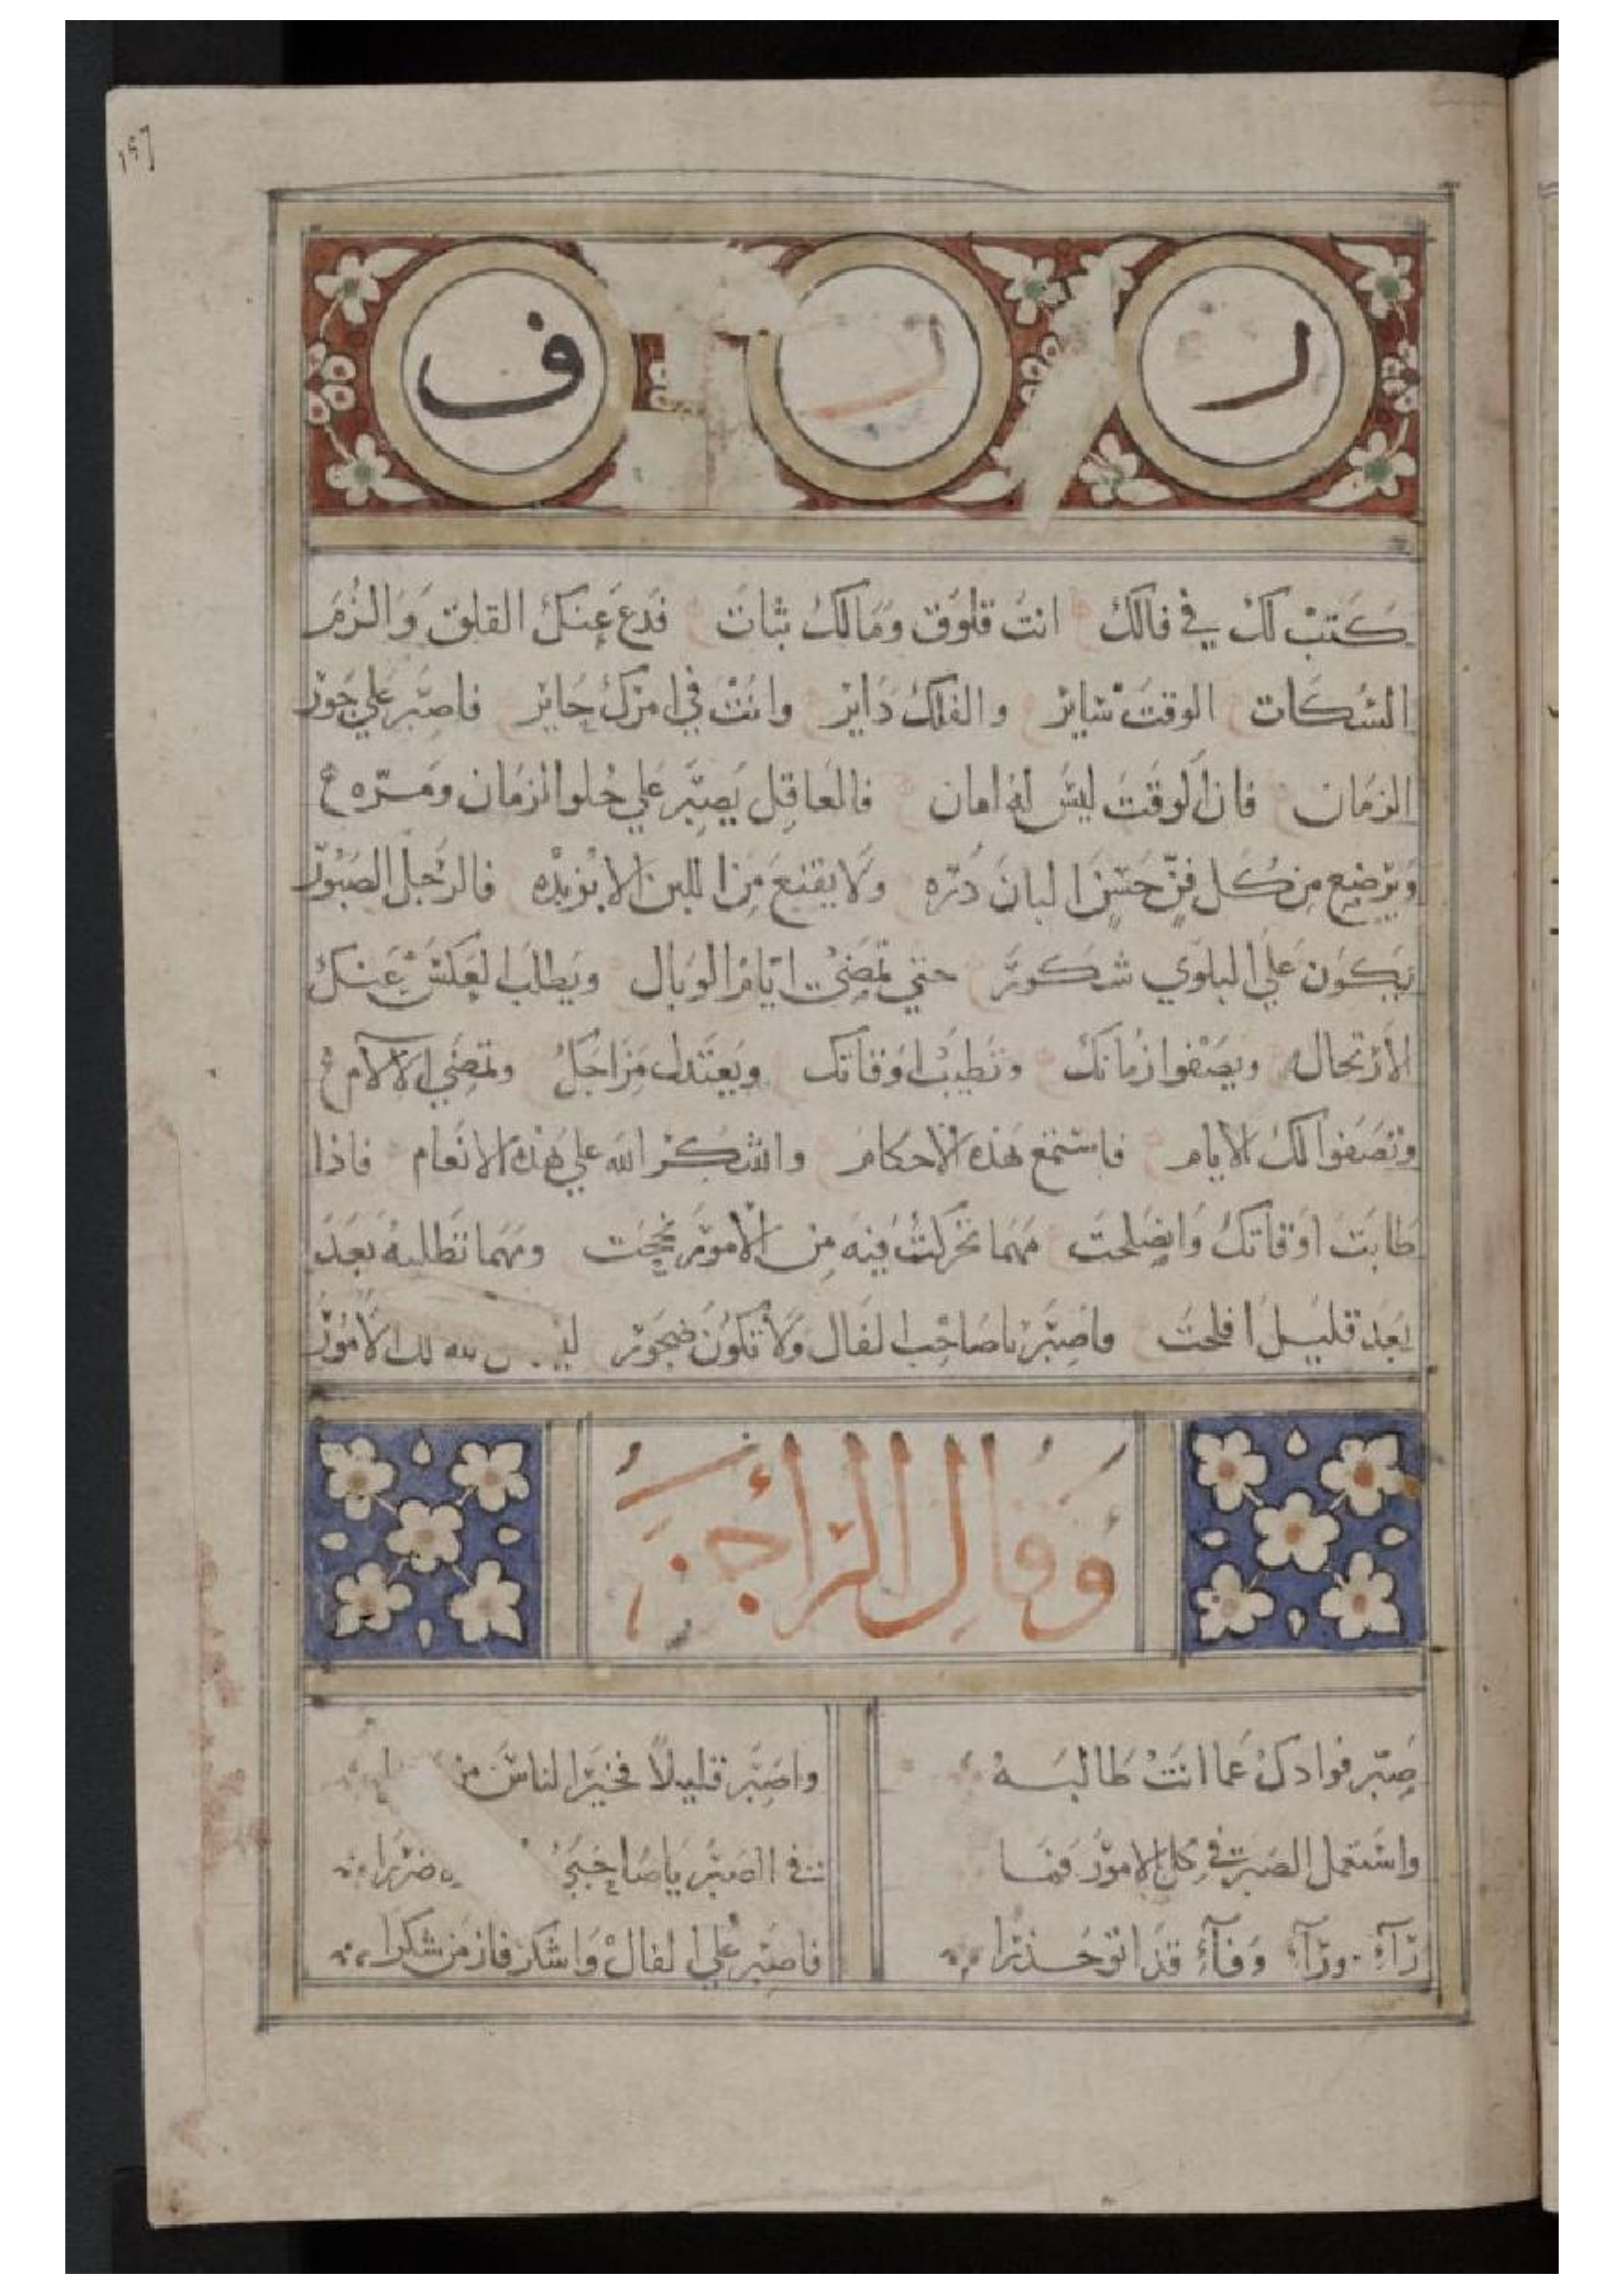 ١٩٦
ر ر ف
كتب لك في فالك انت قلوق ومالك ثبات فدع عنك القلق والزم
السكات الوقت ساير والفلك داير وانت في امرك حاير فاصبر علي جور
الزمان فان الوقت ليس له امان فالعاقل يصبر علي حلو الزمان ومره
ويرضع من كل فن حسن البان دره ولا يقنع من اللبن الا بزبده فالرجل الصبور
يكون علي البلوي شكور حتي تمضي ايام الوبال ويطلب العكس عنك
الارتحال ويصفوا زمانك وتطيب اوقاتك ويعتدل مزاجك وتمضي الالام
وتصفوا لك الايام فاستمع هذه الاحكام واشكر الله علي هذه الانعام فاذا
طابت اوقاتك وانصلحت مهما تحركت فيه من الامور نجحت ومهما تطلبه بعد
بعد قليل افلحت فاصبر يا صاحب الفال ولا تكون ضجور لك الامور
وقال الراجز
صبر فوادك عما انت طالبه واصبر قليلا فخير الناس من
واستعمل الصبر في كل الامور فما في الصبر يا صاحبي ضررا
رآء ورآء وفآء قد اتو حذرا فاصبر علي الفال واشكر فاز من شكرا